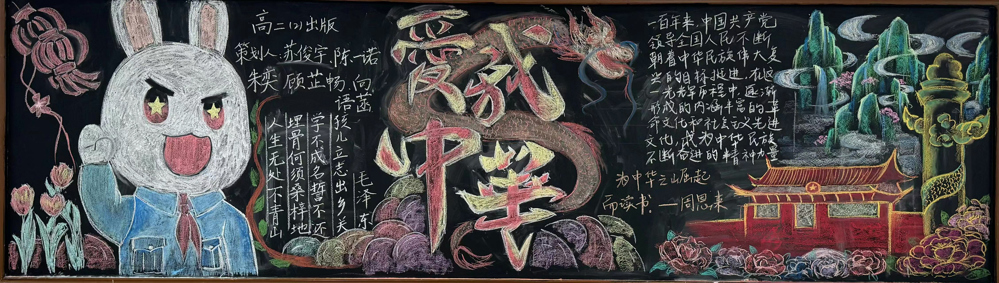 高二(2)出版
策划人:苏俊宇.陈一诺
朱奕 顾芷畅 向
语 茎
孩儿立志出乡关
学不成名誓不还
埋骨何须桑梓地
人生无处不青山
毛泽东
愛我
中華
一百年来,中国共产党
领导全国人民不断
朝着中华民族伟大复
兴的目标挺进.在这
一光辉历程中,逐渐
形成的内涵丰富的革
命文化和社会主义先进
文化,成为中华民族
不断奋进的精神力量
为中华之崛起
而读书.——周恩来